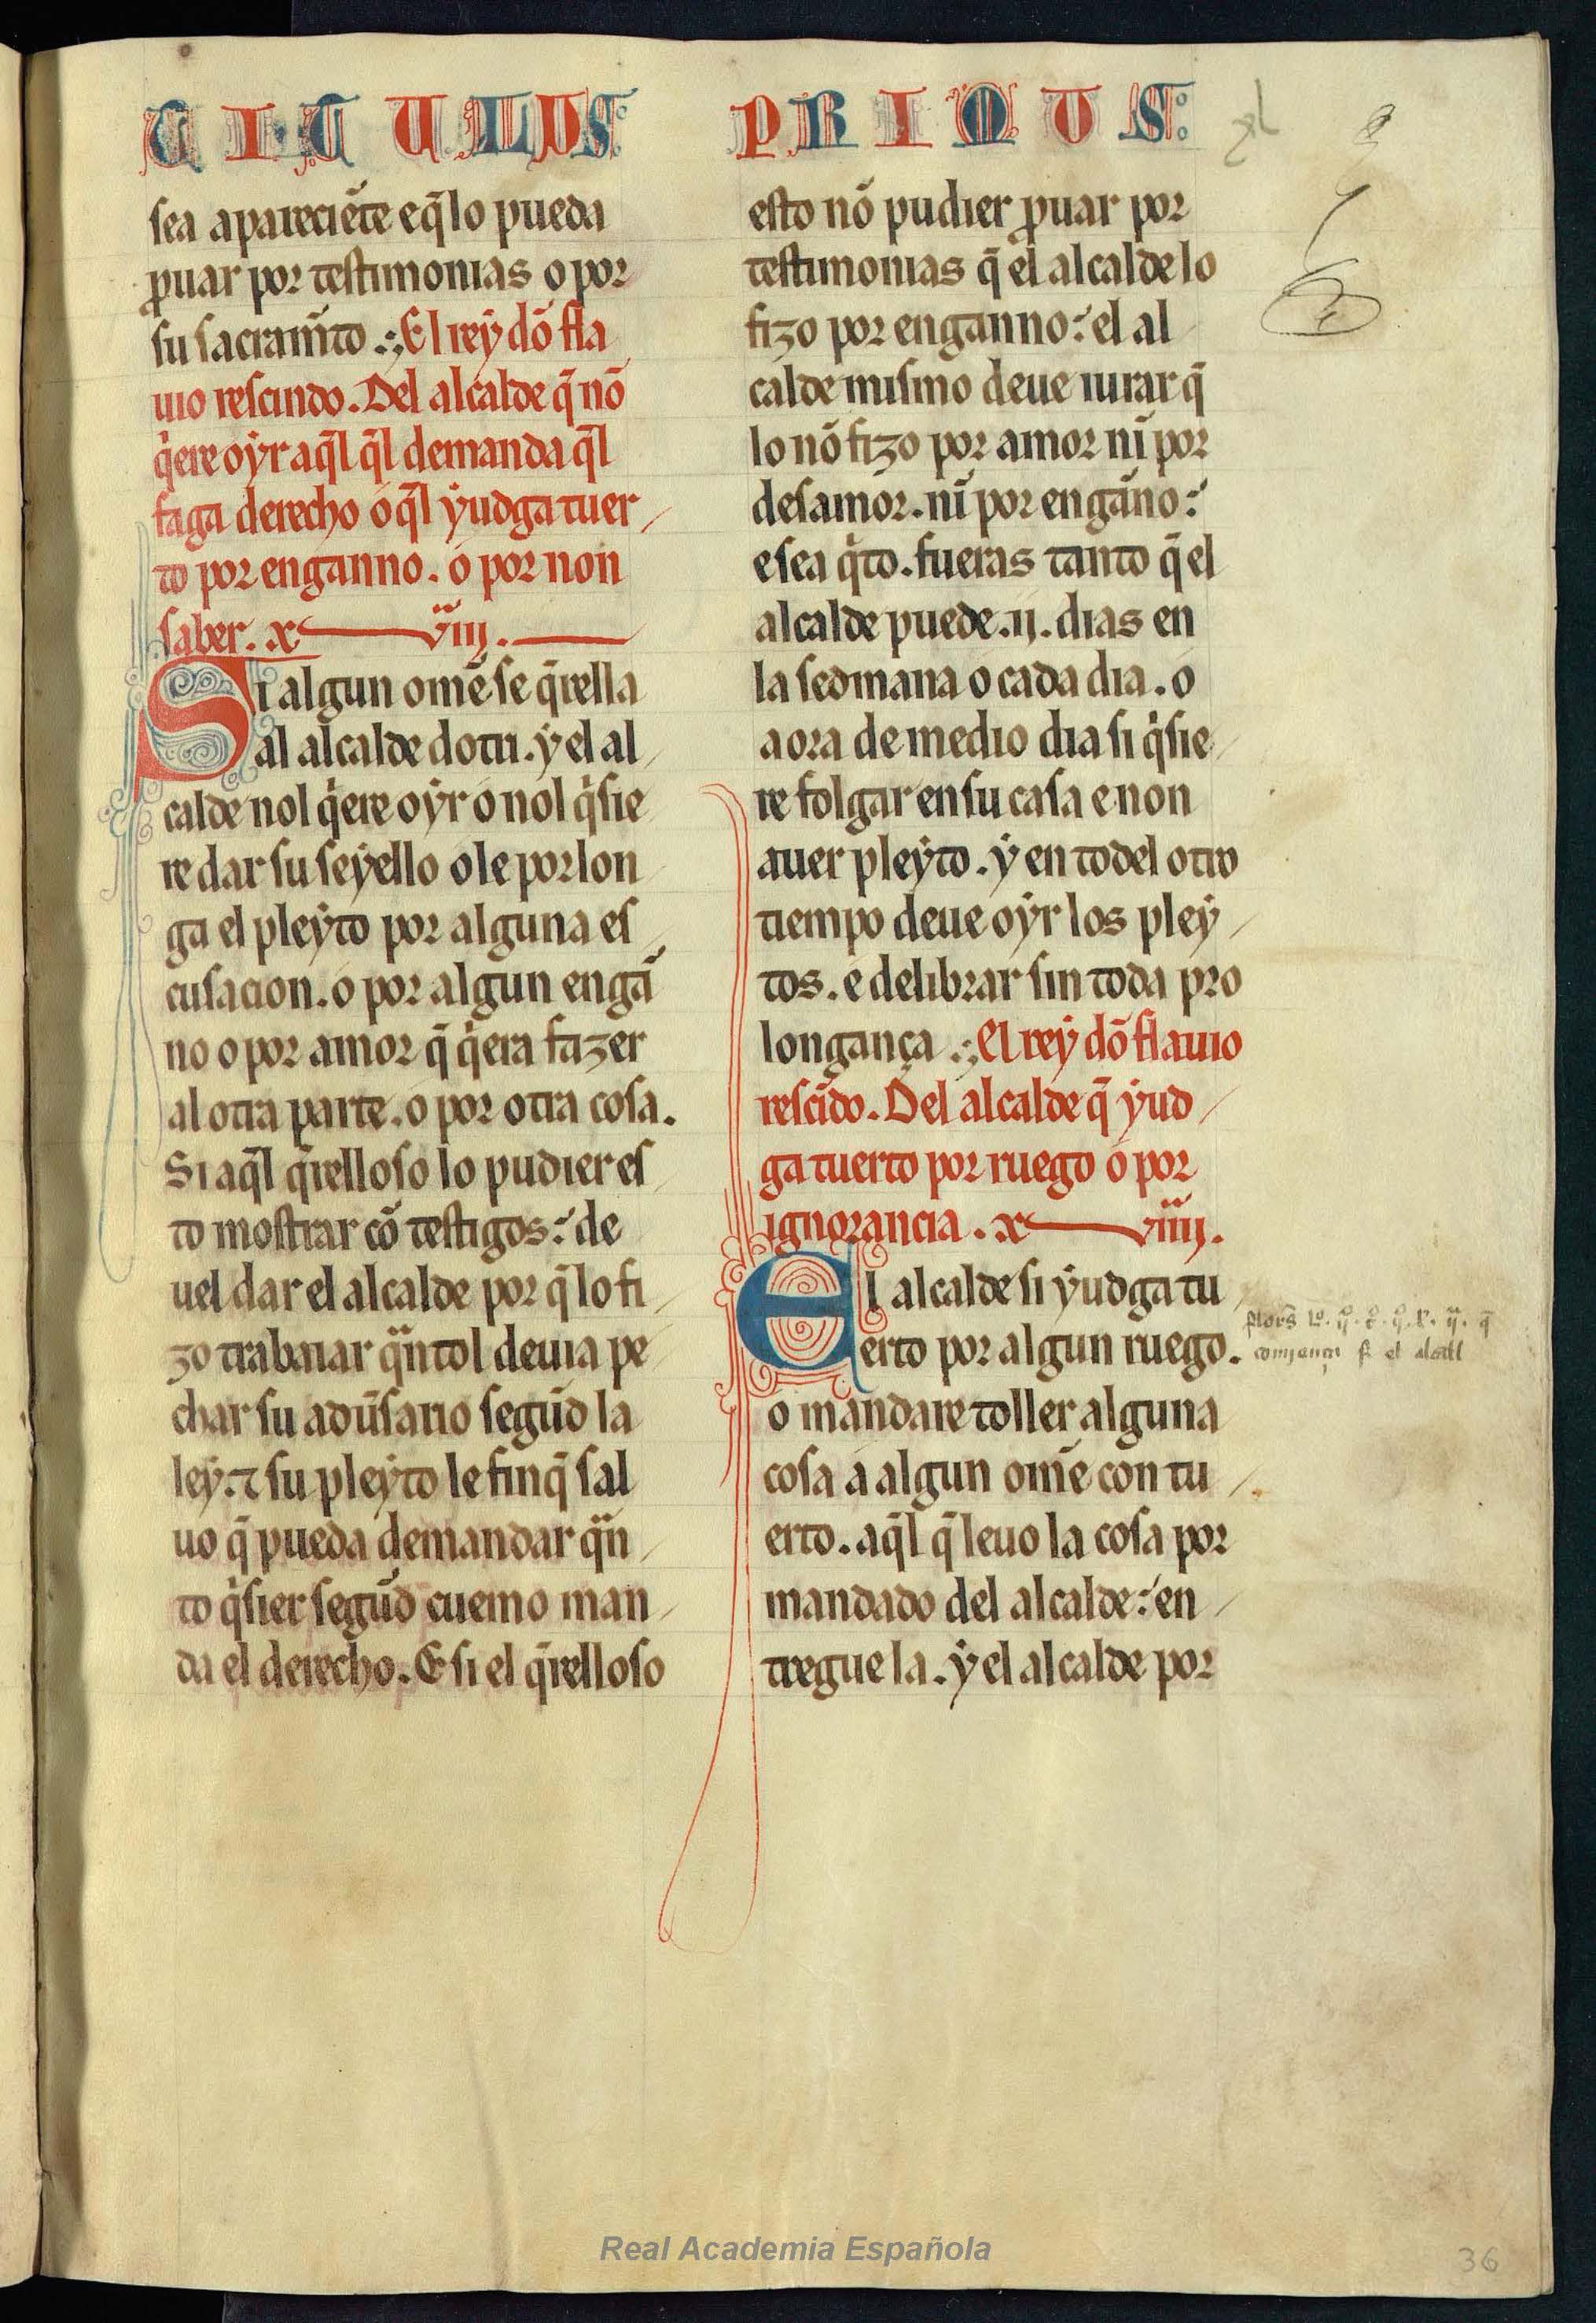 TITULUS
sea apareciẽte eq̃lo pueda
ꝓuar por testimonias o por
su sacram̃to .:, El rey dõ fla
uio rescindo. Del alcalde q̃ nõ
q̇ere oẏr aq̃l q̃l demanda q̃l
faga derecho o q̃l ẏudga tuer
to por enganno. o por non
saber. x viii.
Si algun omẽ se q̃rella
al alcalde dotri. ẏ el al
calde nol q̇ere oẏr o nol q̇sie
re dar su seẏello o le porlon
ga el pleẏto por alguna es
cusacion. o por algun engã
no o por amor q̃ q̇era fazer
al otra parte. o por otra cosa.
Si aq̃l q̃relloso lo pudier es
to mostrar cõ testigos: de
uel dar el alcalde por q̃ lo fi
zo trabaiar q̃ntol deuia pe
char su adũsario segũd la
leẏ. ⁊ su pleẏto le finq̃ sal
uo q̃ pueda demandar q̃n
to q̇sier segũd cuemo man
da el derecho. E si el q̃relloso
PRIMUS
xl
esto nõ pudier ꝓuar por
testimonias q̃ el alcalde lo
fizo por enganno: el al
calde mismo deue iurar q̃
lo nõ fizo por amor nĩ por
desamor. nĩ por engãno:
e sea q̇to. fueras tanto q̃ el
alcalde puede .ii. dias en
la sedmana o cada dia. o
a ora de medio dia si q̇sie
re folgar en su casa e non
auer pleẏto. ẏ en todel otro
tiempo deue oẏr los pleẏ
tos. e delibrar sin toda pro
longança .:, El reẏ dõ flauio
rescĩdo. Del alcalde q̃ ẏud
ga tuerto por ruego o por
ignorancia. x viiii.
El alcalde si ẏudga tu
erto por algun ruego.
o mandare toller alguna
cosa a algun omẽ con tu
erto. aq̃l q̃ leuo la cosa por
mandado del alcalde: en
tregue la. ẏ el alcalde por
el alcall
Real Academia Española
36